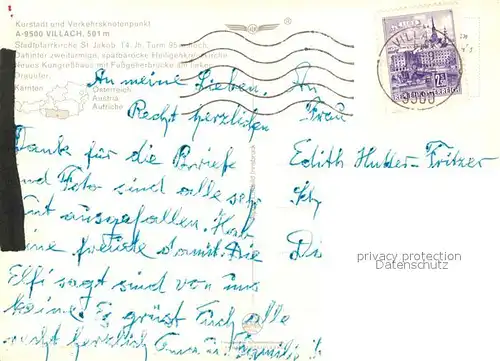 Kurstadt und Verkehrsknotenpunkt
A-9500 VILLACH, 501 m
Stadtpfarrkirche St. Jakob, 14. Jh. Turm 95 m hoch.
Dahinter zweitürmige, spätbarocke Heiligenkreuzkirche
Neues Kongreßhaus mit Fußgeherbrücke am linken
Drauufer.
Kärnten
Österreich
Austria
Autriche
VILLACH
9500
An meine Lieben. An
Recht herzlichen Frau
Dank für die Briefe Edith Hutter-Fritzer
und Foto sind alle sehr
gut ausgefallen. Hab
eine freude damit. Die Di
Elfi sagt sind von uns
keine. Es grüßt Euch alle
recht herzlich Oma u. Familie
privacy protection
Datenschutz